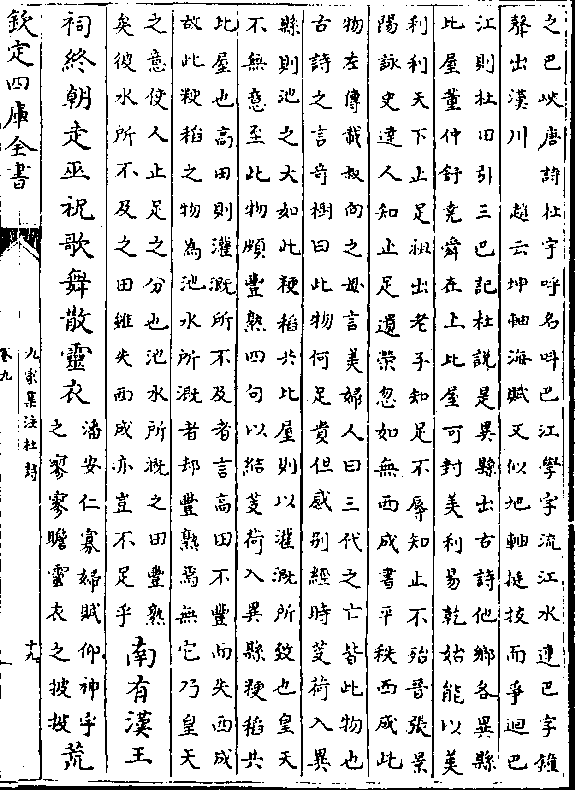 之巴峽唐詩杜宇呼名叫巴江學字流江水連巴字鐘
聲出漢川　趙云坤軸海賦又似地軸挺拔而爭迴巴
江則杜田引三巴記杜說是異縣出古詩他鄉各異縣
比屋董仲舒堯舜在上比屋可封美利易乾始能以美
利利天下止足祖出老子知足不辱知止不殆晉張景
陽詠史達人知止足遺榮忽如無西成書平秩西成此
物左傳哉叔向之母言美婦人曰三代之亡皆此物也
古詩之言奇樹曰此物何足貴但感別經時菱荷入異
縣則池之大如此粳稻共比屋則以灌溉所致也皇天
不無意至此物頗豐熟四句以結菱荷入異縣粳稻共
比屋也高田則灌溉所不及者言高田不豐而失西成
故此粳稻之物為池水所溉者却豐熟焉無它乃皇天
之意使人止足之分也池水所溉之田豐熟
矣彼水所不及之田雖失西成亦豈不足乎
南有漢王
祠終朝走巫祝歌舞散靈衣
潘安仁寡婦賦仰神宇
之寥寥瞻靈衣之披披
荒
欽定四庫全書
九家集注杜詩
卷九
十九